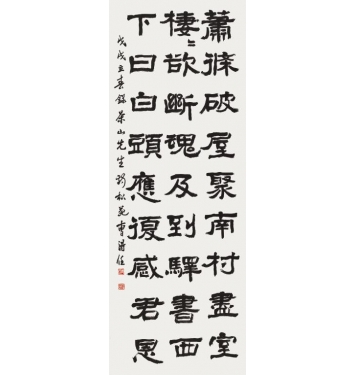 蕭條破屋聚南村盡室
棲〻欲斷魂及到驛書西
下日白頭應復感君恩
戊戌立春錄茶山先生詩松苑曹